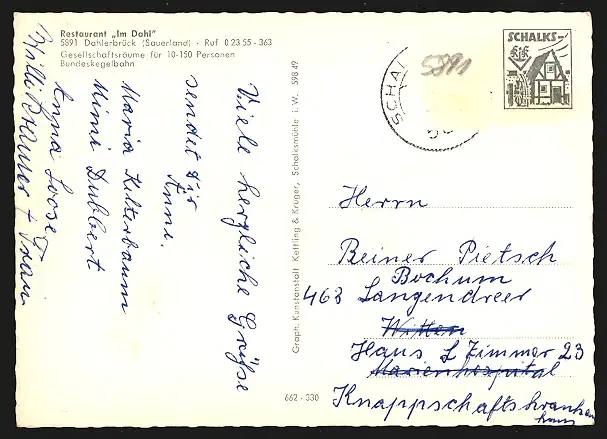 Restaurant „Im Dahl"
5891 Dahlerbrück (Sauerland) · Ruf 0 23 55 - 363
Gesellschaftsräume für 10-150 Personen
Bundeskegelbahn
Viele herzliche Grüße
sendet Dir
Anni.
Maria Kelterbaum
Mimi Dubbert
Anna Loose
Willi Bremer + Frau
Graph. Kunstanstalt Kettling & Krüger, Schalksmühle i. W. 598 49
662 - 330
SCHAL
5891
SCHALKS-
Herrn
Beiner Pietsch
Bochum
463 Langendreer
Witten
Haus L Zimmer 23
Marienhospital
Knappschaftskranken
haus